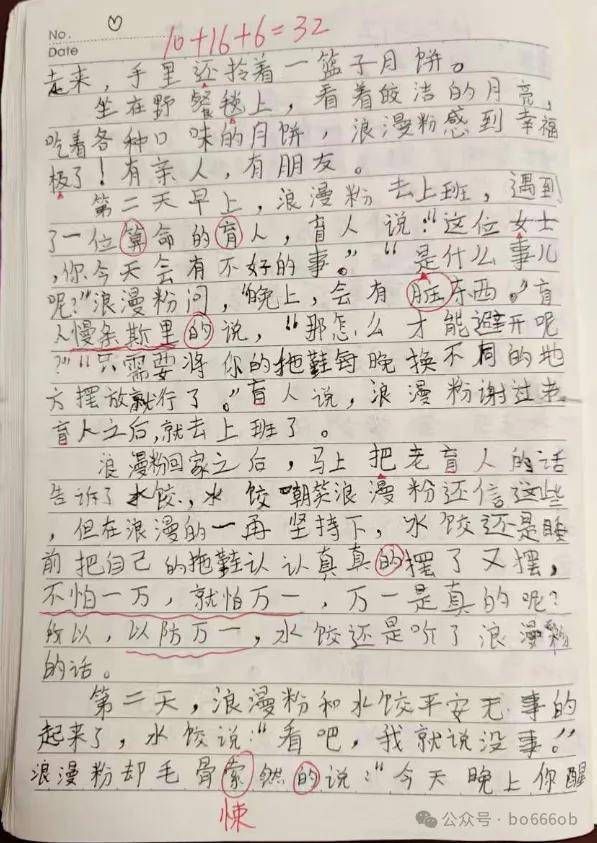 No.
Date
10+16+6=32
走来，手里还拎着一篮子月饼。
坐在野餐毯上，看着皎洁的月亮，
吃着各种口味的月饼，浪漫粉感到幸福
极了！有亲人，有朋友。
第二天早上，浪漫粉去上班，遇到
了一位算命的盲人，盲人说："这位女士
，你今天会有不好的事。""是什么事儿
呢？"浪漫粉问，"晚上，会有脏东西。"盲
人慢条斯里的说，"那怎么才能避开呢
？""只需要将你的拖鞋每晚换不同的地
方摆放就行了。"盲人说，浪漫粉谢过老
盲人之后，就去上班了。
浪漫粉回家之后，马上把老盲人的话
告诉了水饺，水饺嘲笑浪漫粉还信这些
，但在浪漫的一再坚持下，水饺还是睡
前把自己的拖鞋认认真真的摆了又摆，
不怕一万，就怕万一，万一是真的呢？
所以，以防万一，水饺还是听了浪漫粉
的话。
第二天，浪漫粉和水饺平安无事的
起来了，水饺说："看吧，我就说没事。"
浪漫粉却毛骨索然的说："今天晚上你醒
悚
公众号·bo666ob